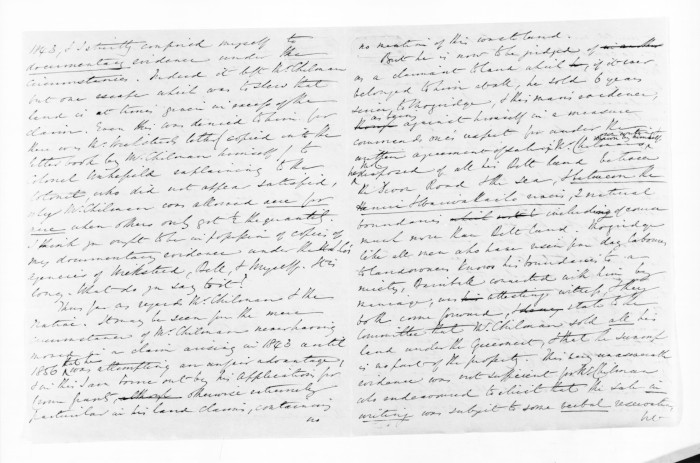 1843, I strictly confined myself to
documentary evidence under the
circumstances. Indeed it left Mr Chilman
but one escape which was to show that
land is at times given in excess of the
claim. Even this was denied to him for
there was Mr Wicksteed's letter (copied into the
letter book by Mr Chilman himself,) to
Colonel Wakefield explaining to the
Colonist, who did not appear satisfied,
why Mr Chilman was allowed acre for
acre when others only got ¾ the quantity.
I think you ought to be in possession of copies of
my documentary evidence under the
agencies of Wicksteed, Bell, & Myself. It is
long. What do you say to it?
Thus far as regards Mr Chilman & the
Native. It may be seen for the mere
circumstance of Mr Chilman never having
moved in a claim arising in 1843 until
1856 that he was attempting an unfair advantage,
& in this I am borne out by his application for
grants, otherwise extremely
particular in his land claims, containing
no
no mention of this waste land.
But he is now to be judged
as a claimant to land which, if it ever
belonged to him at all, he sold 6 years
to Thororidge, & this man's evidence,
as being against himself in a measure
commands one's respect for under the
agreement of sale Mr Chilman
disposed of all his Bell land between
the Devon Road & the sea, & between the
Henui & Waiwakaiho rivers, 2 natural
boundaries including of course
much more than Bell land.
like all men who have risen from day labourers
to landowners knows his boundaries to a
nicety, connected with him by
marriage, was attesting witness, & they
both come forward, & state to the
Committee that Mr Chilman sold all his
land under the agreement, & that the swamp
is no part of the property. This
evidence was not sufficient for Mr Chilman
who endeavoured to elicit that the sale in
writing was subject to some verbal reservation,